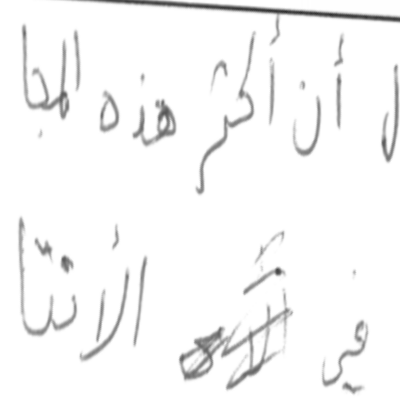 ل أن أكثر هذه المجا
في الأنتا